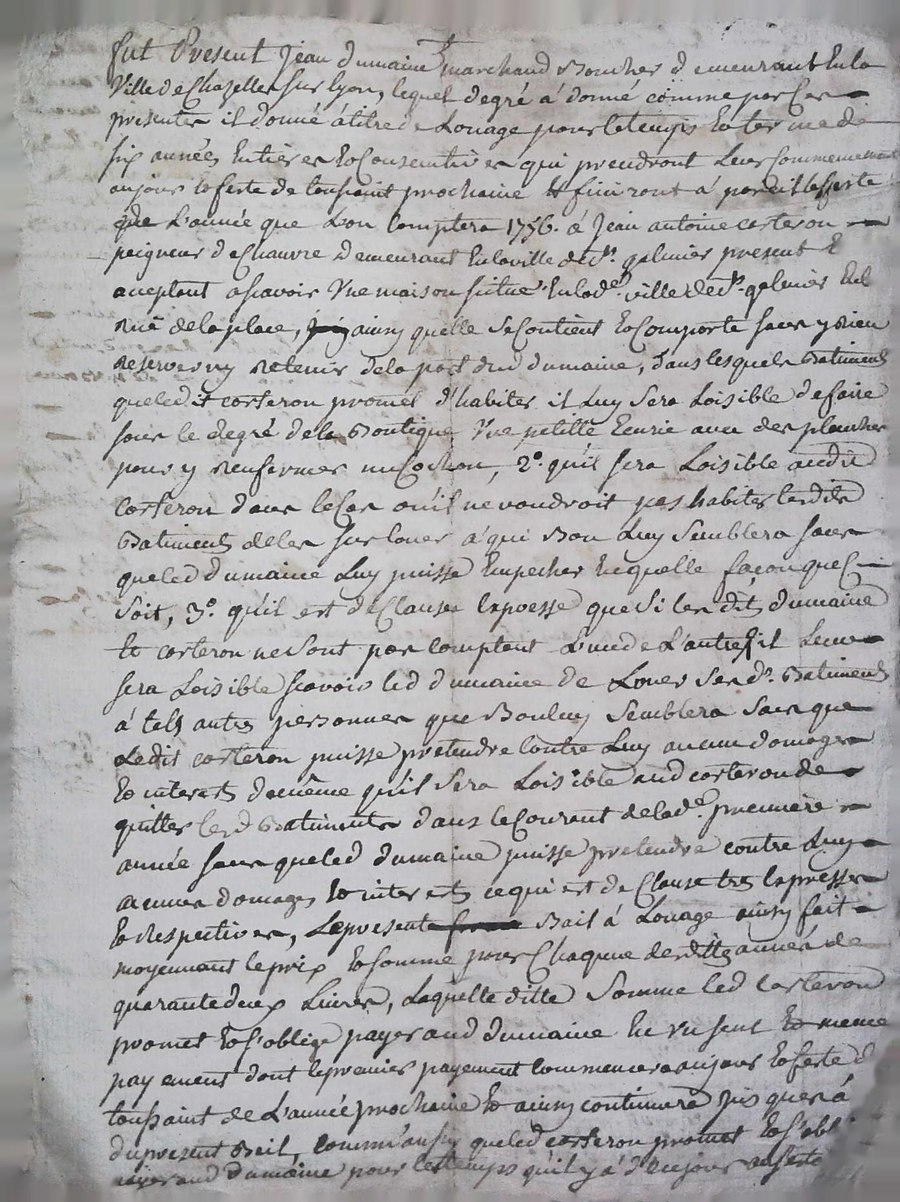 fut Present Jean dumaine marchand Boucher demeurant En la
Ville de Chazelles sur lyon, lequel degré a donné comme par Ces
presentes il donne à titre de Louage pour le temps Et terme de
six années Entieres Et Consecutives qui prendront leur Commencement
au jour Et feste de toussaint prochaine Et finiront à pareil jour Et feste
de L'année que L'on Comptera 1756. à Jean antoine corteron
peigneur de Chanvre demeurant En la ville de St. galmier present E
acceptant ascavoir Vne maison scitue En lade. ville de St. galmier En l
rue de la place, ainsy quelle se Contient Et Comporte sans y Rien
reserver ny retenir de la part dud dumaine, dans lesquels Batiments
que ledit corteron promet d'habiter il Luy sera Loisible de faire
sous le degré de la Boutique Vne petitte Ecurie avec des planches
pour y renfermer un Cochon, 2°. qu'il sera Loisible audit
corteron dans le Cas ou il ne voudroit pas habiter lesdits
Batiments de les sur louer à qui Bon Luy Semblera sans
que led dumaine Luy puisse Empecher En quelle façon que Ce
Soit, 3°. qu'il est de Clause Expresse que Si les dits dumaine
Et corteron ne Sont pas Comptent L'un de L'autre il Leur
sera Loisible scavoir led dumaine de Louer Ses ds. Batiments
à tels autres personnes que Bon luy Semblera Sans que
Ledit corteron puisse pretendre Contre Luy aucun domages
Et interets de même qu'il Sera Loisible aud corteron de
quitter lesd Batiments dans le Courant de lade. premiere
année sans que led dumaine puisse pretendre contre Luy
aucuns domages Et interets ce qui est de Clause tres Expresse
Et Respective, Le present Bail à Louage ainsy fait
moyennant le prix Et Somme pour Chaque desdittes années de
quarante deux Livres, Laquelle ditte Somme led corteron
promet Et s'oblige payer aud dumaine En Vn seul Et meme
payement dont le premier payement Commencera au jour Et feste d
toussaint de L'année prochaine Et ainsy continuera
du present Bail, comm'aussy que led corteron promet Et s'obli
payer aud dumaine pour le temps qu'il y a d'icy au jour